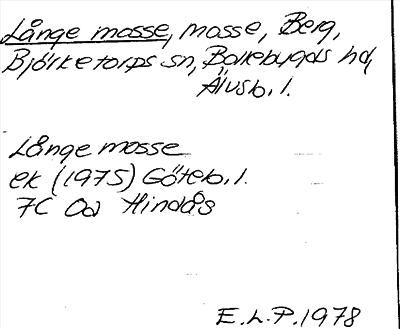 Långe mosse, mosse, Berg,
Björketorps sn, Bollebygds hd,
Älvsb. l.
Långe mosse
ek (1975) Göteb. l.
7C 0d Hindås
E.L.P. 1978